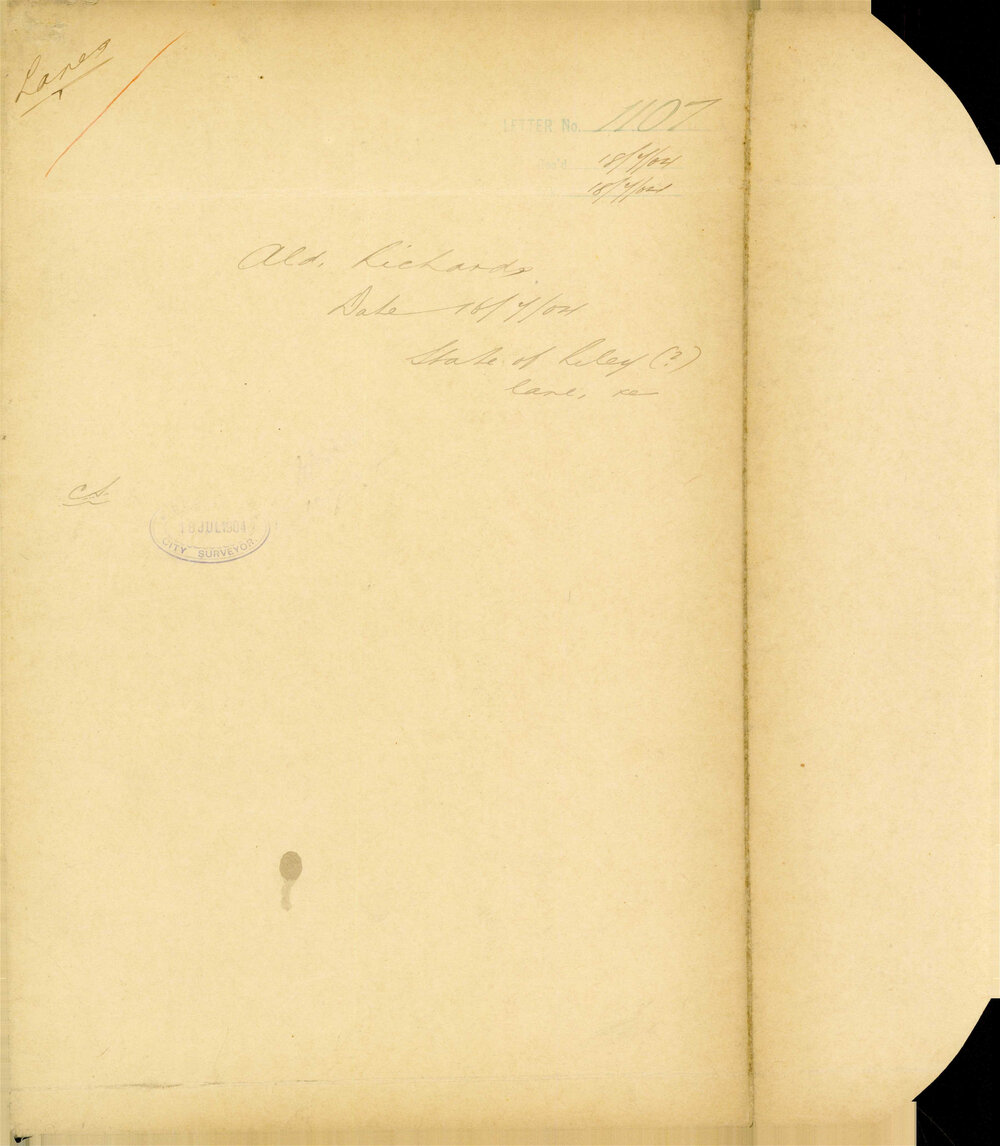 Lanes
LETTER No. 1107
Rec'd 18/7/04
18/7/04
Ald. Richards
Date 18/7/04
State of Riley (?)
lane, re
CS.
18 JUL 1904
CITY SURVEYOR.